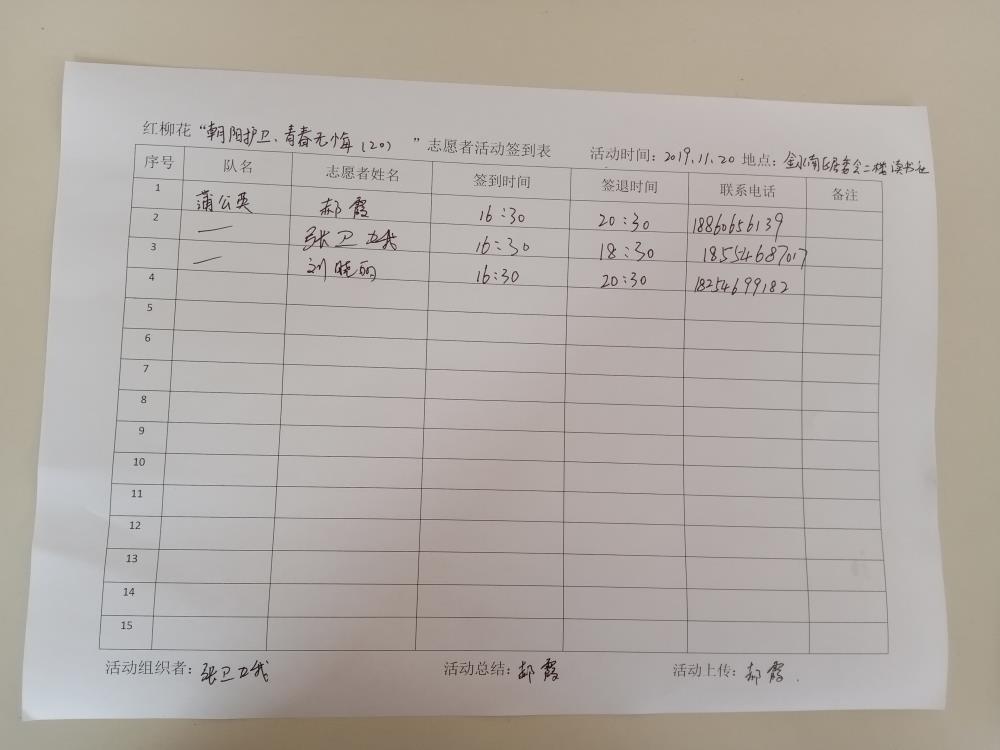 红柳花“朝阳护卫、青春无悔（20）”志愿者活动签到表 活动时间：2019.11.20 地点：金水南区居委会二楼读书社
序号 队名 志愿者姓名 签到时间 签退时间 联系电话 备注
1 蒲公英 郝霞 16:30 20:30 18860656139
2 — 张卫 16:30 18:30 18554687017
3 — 刘晓丽 16:30 20:30 18254699182
4
5
6
7
8
9
10
11
12
13
14
15
活动组织者：张卫 活动总结：郝霞 活动上传：郝霞.